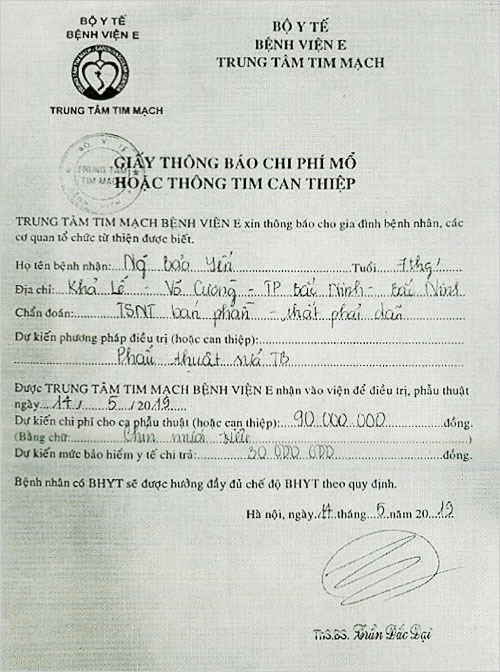 BỘ Y TẾ
BỆNH VIỆN E
TRUNG TÂM TIM MẠCH
BỘ Y TẾ
BỆNH VIỆN E
TRUNG TÂM TIM MẠCH
BỘ Y TẾ
TRUNG TÂM
TIM MẠCH
GIẤY THÔNG BÁO CHI PHÍ MỔ
HOẶC THÔNG TIM CAN THIỆP
TRUNG TÂM TIM MẠCH BỆNH VIỆN E xin thông báo cho gia đình bệnh nhân, các
cơ quan tổ chức từ thiện được biết.
Họ tên bệnh nhân: Ng Bảo Yến Tuổi 7thg'
Địa chỉ: Khả Lễ - Võ Cường - TP Bắc Ninh - Bắc Ninh
Chẩn đoán: TSNT bán phần - thất phải
Dự kiến phương pháp điều trị (hoặc can thiệp):
Phẫu thuật sửa TB
Được TRUNG TÂM TIM MẠCH BỆNH VIỆN E nhận vào viện để điều trị, phẫu thuật
ngày 14 / 5 /2019
Dự kiến chi phí cho ca phẫu thuật (hoặc can thiệp): 90 000 000 đồng.
(Bằng chữ: Chín mươi triệu )
Dự kiến mức bảo hiểm y tế chi trả: 30 000 000 đồng.
Bệnh nhân có BHYT sẽ được hưởng đầy đủ chế độ BHYT theo quy định.
Hà nội, ngày 14 tháng 5 năm 2019
ThS.BS. Trần Đắc Đại